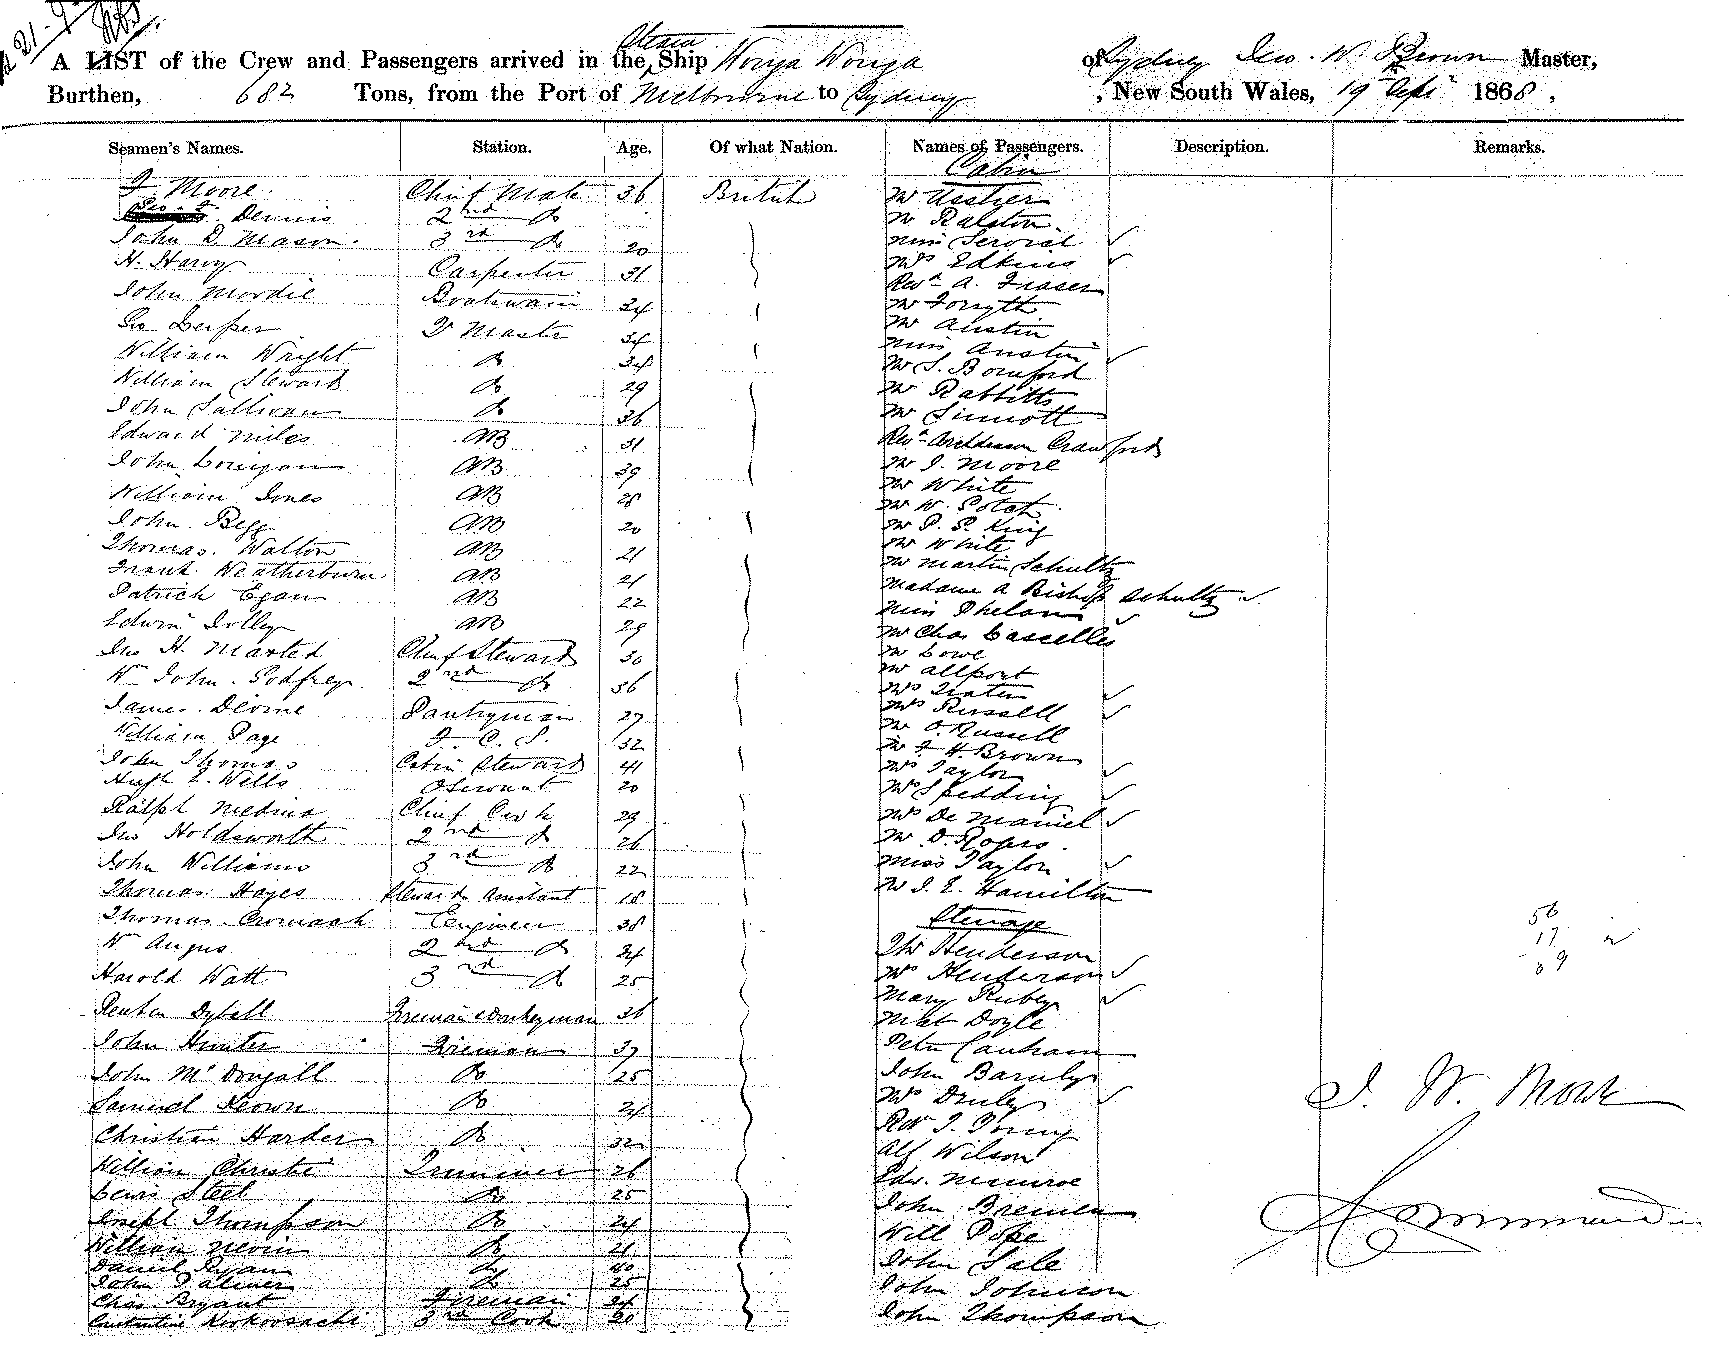 A LIST of the Crew and Passengers arrived in the Steam Ship Wonga Wonga of Sydney Jno. W. Brown Master,
Burthen, 682 Tons, from the Port of Melbourne to Sydney, New South Wales, 19th Sept 1868.
Seamen's Names. Station. Age. Of what Nation. Names of Passengers. Description. Remarks.
Cabin
J Moore Chief Mate 36 British Mr Ussher
Dennis 2nd Do Mr Ralston
John D. Mason 3rd Do 20 Miss
H. Harvy Carpenter 31 Mrs Edkins
John Mordie Boatswain 34 Revd A. Fraser
Mr Forsyth
Q Master 34 Mr Austin
William Wright Do 34 Miss Austin
William Steward Do 29 Mr S. Bomford
Mr Rabbitts
John Sullivan Do 36 Mr Sinnott
Edward Miles AB 31 Revd Archdeacon Crawford
John Lonigan AB 39 Mr J. Moore
William Jones AB 28 Mr White
Mr W.
John Begg AB 20 Mr P. P. King
Thomas Walton AB 21 Mr White
Frank Weatherburn AB 21 Mr Martin Schultz
Patrick Egan AB 22 Madame A Bishop Schultz
Edwin Jolley AB 29 Miss Phelan
Mr Chas Casselles
Jno H. Marted Chief Steward 30 Mr Lowe
Wm John Godfrey 2nd Do 36 Mr Allport
Mrs
James Devine Pantryman 27 Mrs Russell
William Page F. C. S. 32 Mr O. Russell
John Thomas Cabin Steward 41 Mr J. H. Brown
Hugh E. Wells 20 Mrs Taylor
Mrs Spedding
Ralph Medina Chief Cook 29 Mrs De
Jno Holdsworth 2nd Do 26 Mr D. Rogers
John Williams 3rd Do 22 Miss Taylor
Thomas Hayes Stewards Assistant 18 Mr J. E. Hamilton
Thomas Cromack Engineer 38 Steerage
56
W Angus 2nd Do 24 Henderson
17
Harold Watt 3rd Do 25 Mrs Henderson
69
Mary Ruby
Reuben Dybell Fireman & Donkeyman 36 Mat Doyle
John Hunter Fireman 37 Peter Canham
John McDougall Do 25 John Barnby
Samuel Keown Do 24 Mrs
J. W. Brown
Christian Harder Do 32 Revd J.
Alf Wilson
William Christie Trimmer 26 Edw. Munroe
Lewis Steel Do 25 John Bremen
Commander
Joseph Thompson Do 24 Will Pope
William Nevin Do 21
Daniel Ryan Do 40 John Sale
John Palmer Do 25 John Johnson
Chas Bryant Fireman 24
3rd Cook 20 John Thompson